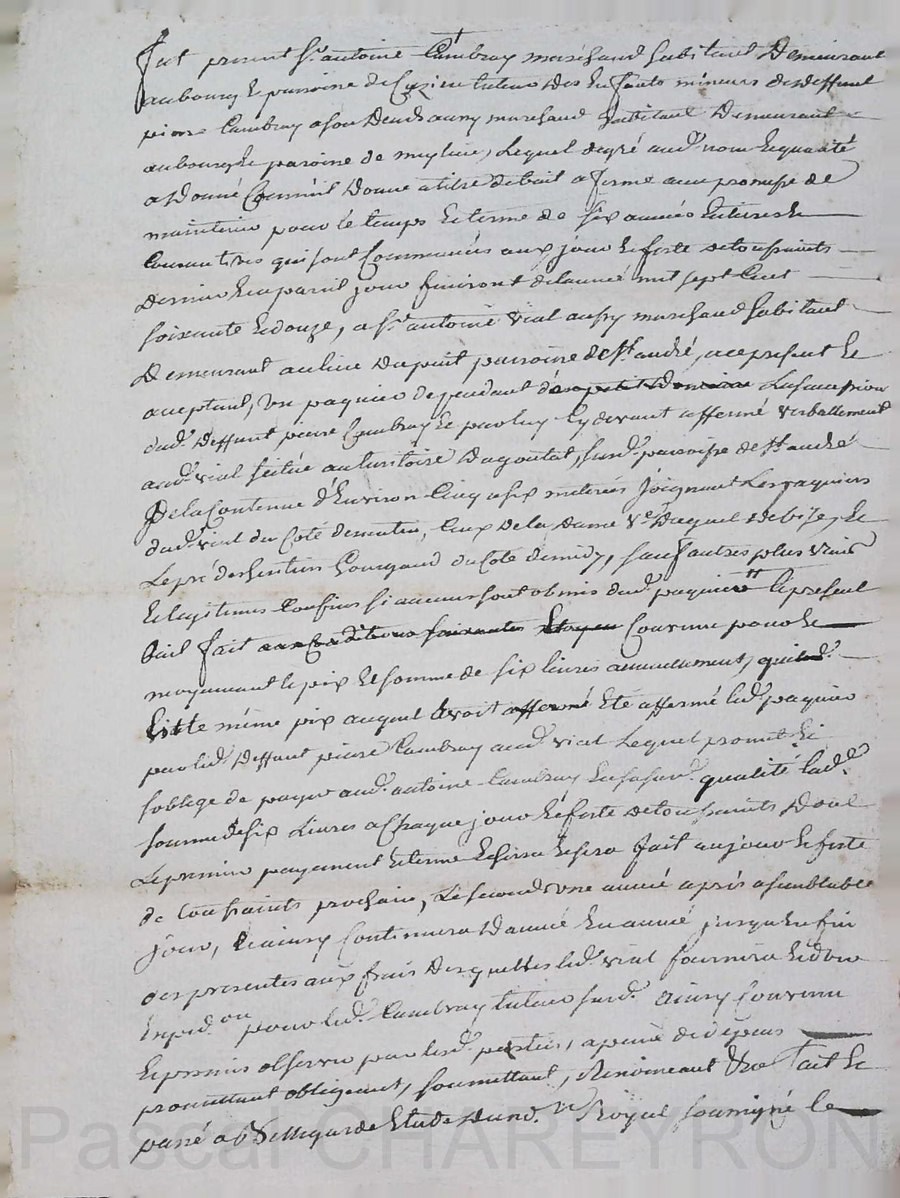 fut present Sr. antoine Cambray marchand habitant Demeurant
au bourg & paroisse de Cuzieu tuteur des Enfants mineurs de deffunt
pierre Cambray a son deceds aussy marchand habitant Demeurant
au bourg & paroisse de , Lequel de gré aud. nom & qualité
a Donné Comme il Donne a titre de bail a ferme avec promesse de
maintenir pour le temps & terme de six années Entieres &
Consecutives qui sont Commancées aux jour & feste de toussaints
dernier & a pareil jour finiront de lannée mil sept Cent
soixante & douze, a Sr. antoine vial aussy marchand habitant
Demeurant au lieu Dupont paroisse de St. andré, a ce present &
acceptant, un paquier dependant de La succession
dud. deffunt pierre Cambray & par luy Cy devant affermé verballement
aud. vial scitué au territoire Dagoutat, susd. paroisse de St. andré
De la Contenue d'Environ Cinq a six meterées Joignant Les paquiers
dud. vial du Coté de matin, Ceux de la Dame Ve. de bize, &
Le pré des heritiers Gourgaud du Coté de midy, sauf autres plus vrais
& legitimes Confins si aucuns sont obmis dud. paquier Le present
bail fait aux Conditions suivantes Convenu pour &
moyennant le prix & somme de six livres annuelement,
mème prix auquel avoit affermé Eté affermé led. paquier
par led. deffunt pierre Cambray aud. vial Lequel promet &
soblige de payer aud. antoine Cambray En sa susd. qualité lad.
somme de six Livres a Chaque jour & feste de toussaints dont
Le premier payement & terme & sera fait au jour & feste
de toussaints prochain, Le second une année après a semblable
jour, & ainsy Continuera dannée En année jusqu'en fin
des presentes aux frais desquelles led. vial fournira
Exped.on pour led. Cambray tuteur susd. ainsy Convenu
& promis observer par lesd. parties, a peine de dépens
promettant obligeant, soumettant, Renonceant &ca fait &
passé a Bellegarde Etude du nore. Royal soussigné le
Pascal CHAREYRON